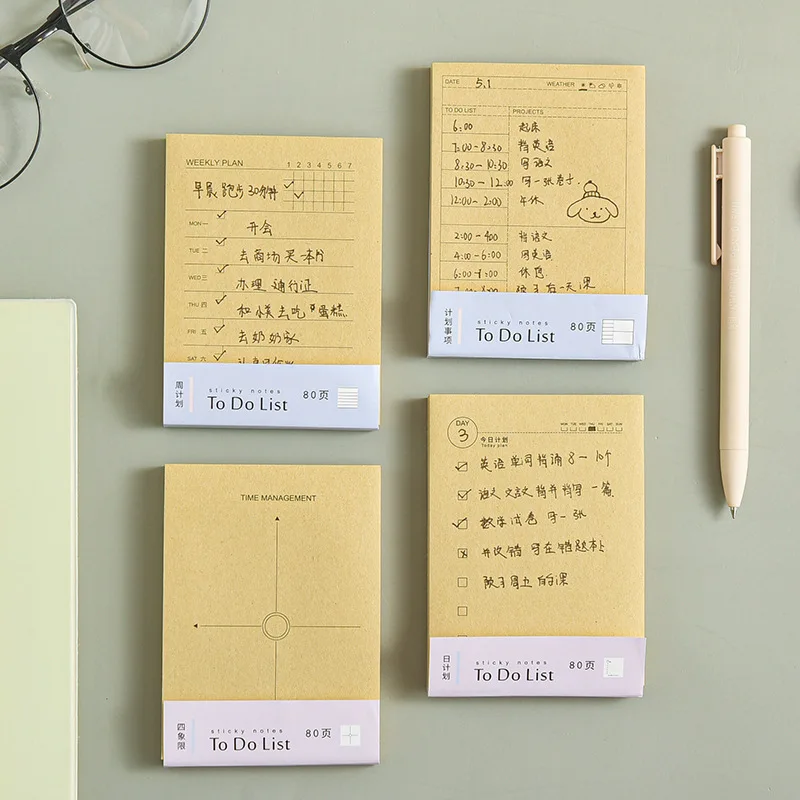 WEEKLY PLAN
1 2 3 4 5 6 7
早晨跑步30分钟
MON 一 开会
TUE 二 去商场买本
WED 三 办理通行证
THU 四 和小美去吃蛋糕
FRI 五 去奶奶家
SAT 六
周计划
sticky notes
To Do List
80页
DATE 5.1 WEATHER
TO DO LIST PROJECTS
6:00 起床
7:00-8:30 背英语
8:30-10:30 写语文
10:30-12:00 写一张卷子
12:00-2:00 午休
2:00-4:00 背语文
4:00-6:00 写英语
6:00-7:00 休息
7:00-8:00 预习后一天课
计划事项
sticky notes
To Do List
80页
TIME MANAGEMENT
四象限
sticky notes
To Do List
80页
DAY 3
今日计划
Today plan
MON TUE WED THU FRI SAT SUN
英语单词背诵8-10个
语文文言文背并背写一篇
数学试卷写一张
并改错写在错题本上
预习周五的课
日计划
sticky notes
To Do List
80页